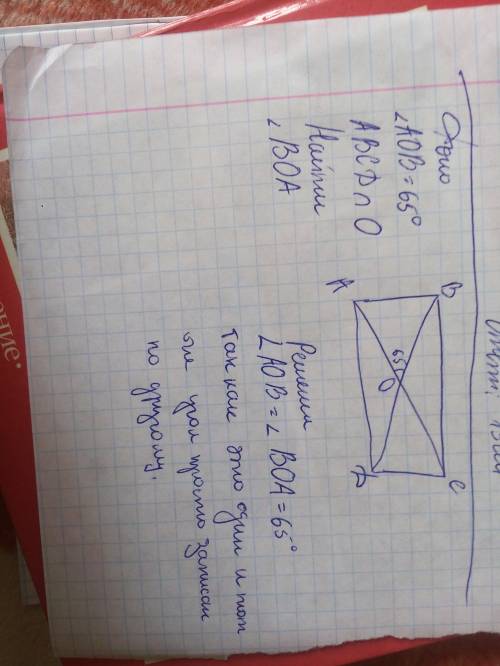 Дано
∠AOB=65°
ABCD∩O
Найти
∠BOA
A
B
65
O
D
C
Решения
∠AOB=∠BOA=65°
так как это один и тот
же угол просто записан
по другому.
ение.